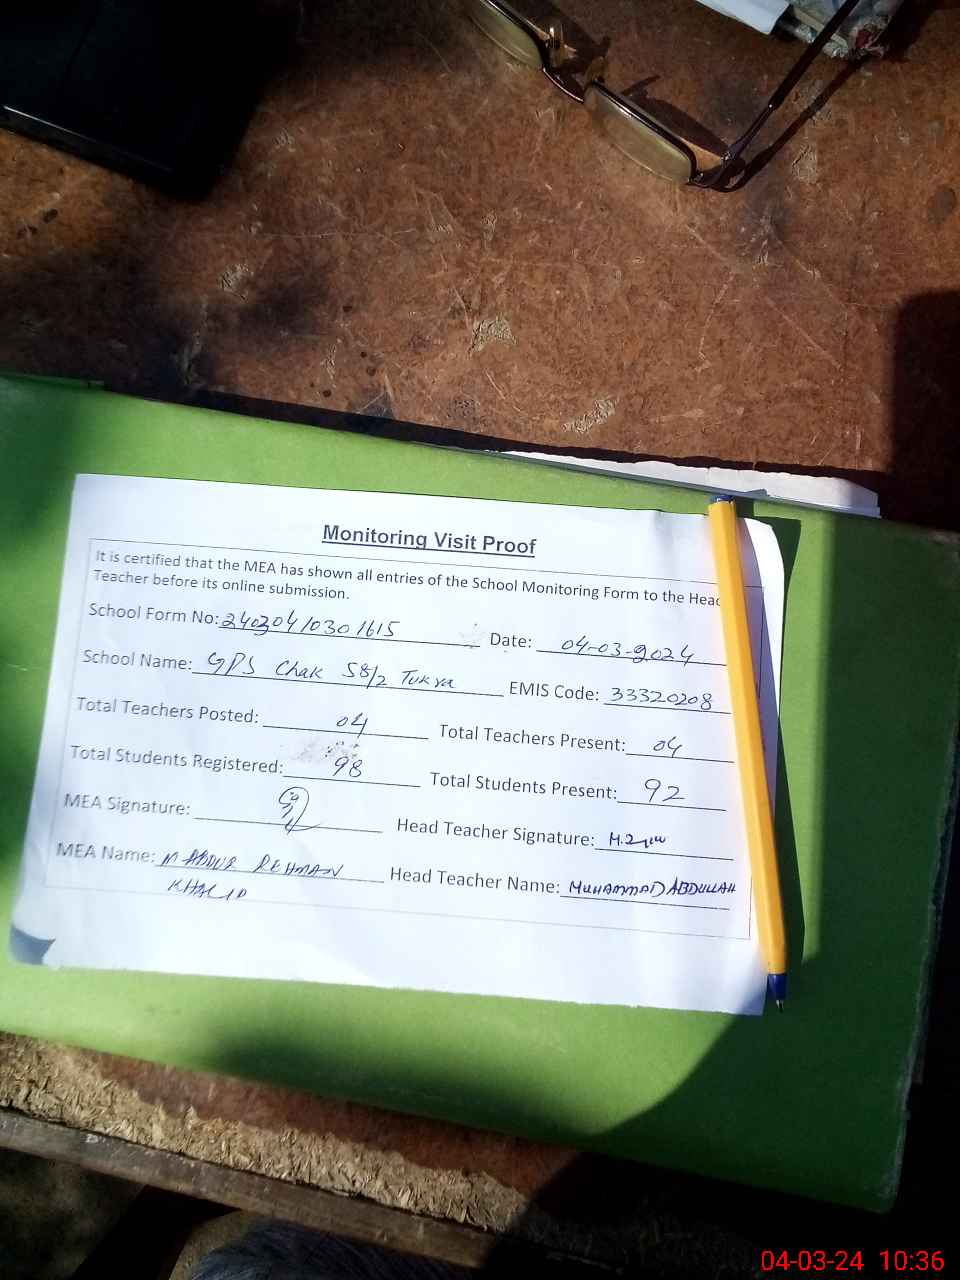 Monitoring Visit Proof
It is certified that the MEA has shown all entries of the School Monitoring Form to the Head
Teacher before its online submission.
School Form No: 24030410301615 Date: 04-03-2024
School Name: GPS Chak 58/2 Tukra EMIS Code: 33320208
Total Teachers Posted: 04 Total Teachers Present: 04
Total Students Registered: 98 Total Students Present: 92
MEA Signature: Head Teacher Signature:
MEA Name: M ABDUR REHMAN Head Teacher Name: MUHAMMAD ABDULLAH
KHALID
04-03-24 10:36